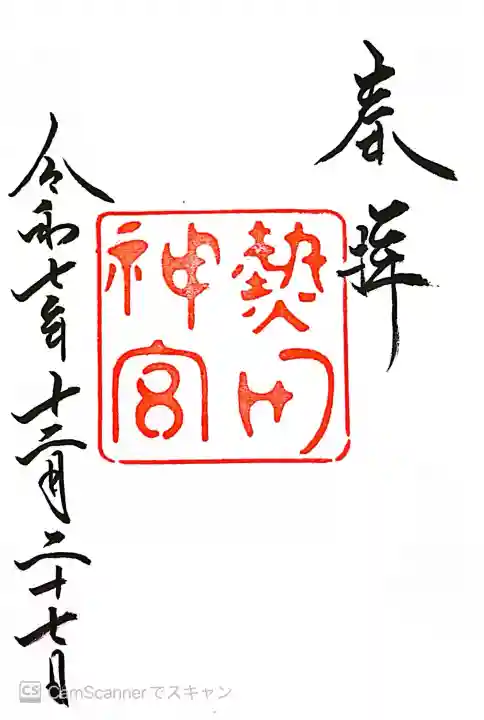 奉拝
熱田
神宮
令和七年十二月二十七日
CS CamScannerでスキャン